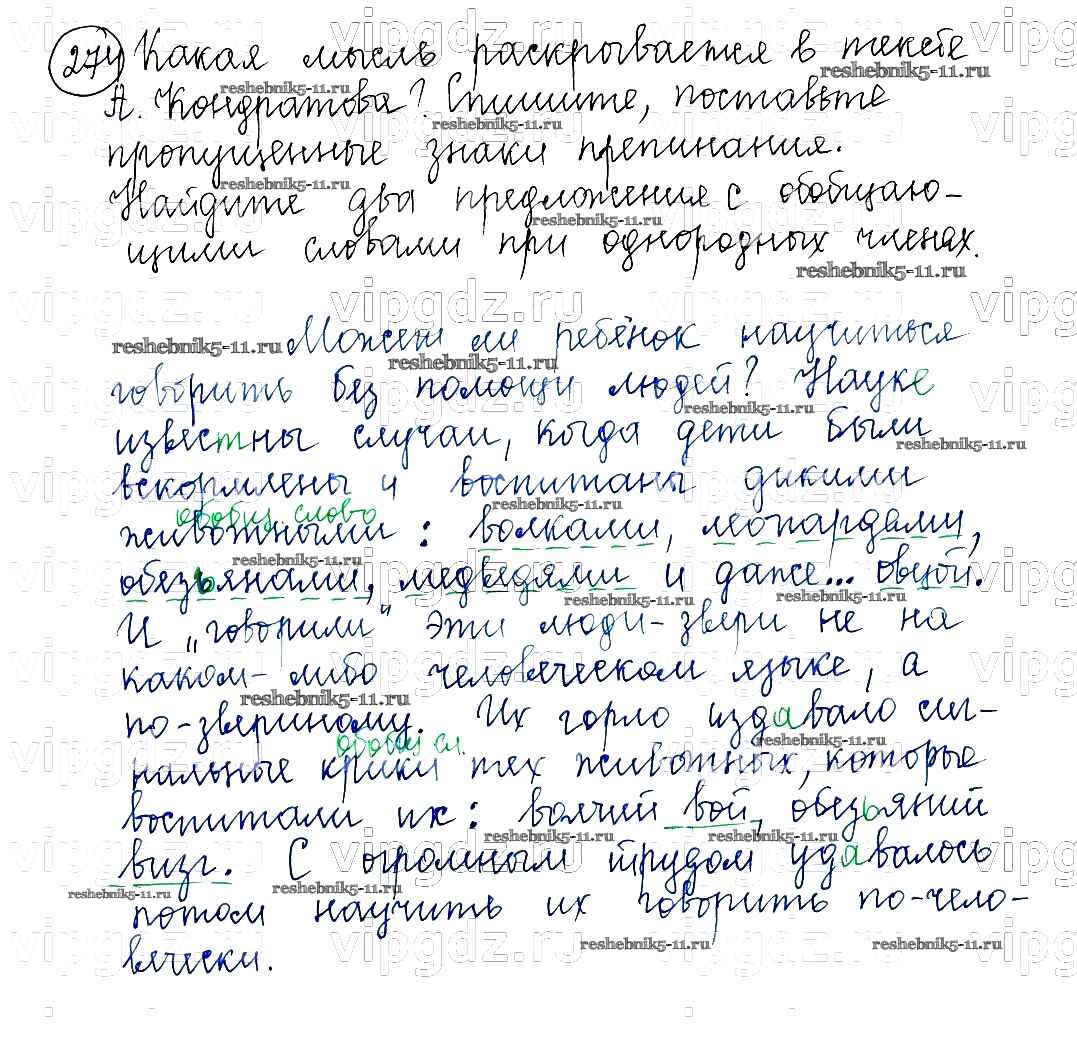 274 Какая мысль раскрывается в тексте
А. Кондратова? Спишите, поставьте
пропущенные знаки препинания.
Найдите два предложения с обобщаю-
щими словами при однородных членах.
Можем ли ребёнок научиться
говорить без помощи людей? Науке
известны случаи, когда дети были
вскормлены и воспитаны дикими
обобщ. слово
животными: волками, леопардами,
обезьянами, медведями и даже... овцой.
И „говорили" эти люди-звери не на
каком-либо человеческом языке, а
по-звериному. Их горло издавало сиг-
обобщ сл.
нальные крики тех животных, которые
воспитали их: волчий вой, обезьяний
визг. С огромным трудом удавалось
потом научить их говорить по-чело-
вечески.
vipgdz.ru
reshebnik5-11.ru